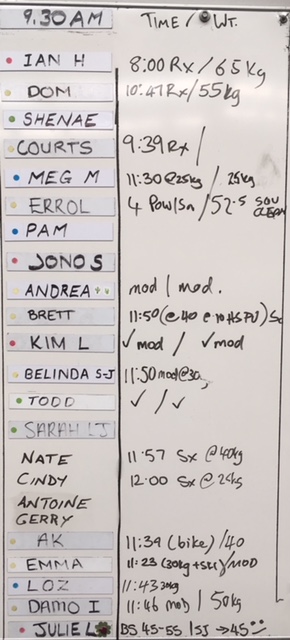 9.30 AM TIME / WT.
IAN H 8:00 Rx / 65kg
DOM 10:47 Rx / 55kg
SHENAE
COURTS 9:39 Rx /
MEG M 11:30 @25kg / 25kg
ERROL 4 Pow/Sn / 52.5 SQU CLEAN
PAM
JONO S
ANDREA mod / mod.
BRETT 11:50 (@40 @ 10 HSPU) Sc
KIM L ✓mod / ✓mod
BELINDA S-J 11:50 mod@30kg
TODD ✓ / ✓
SARAH LJ
NATE 11:57 Sx @40kg
CINDY 12:00 Sx @25kg
ANTOINE
GERRY
AK 11:39 (bike) / 40
EMMA 11:23 (30kg + / MOD
LOZ 11:43 30kg
DAMO I 11:46 mod / 50kg
JULIE L BS 45-55 / SJ → 45